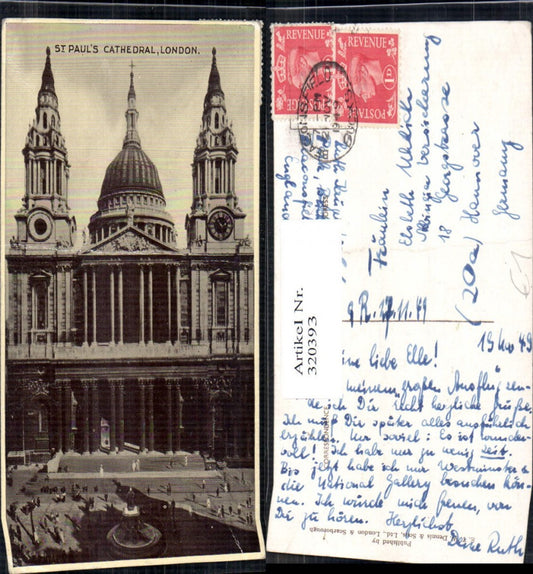 ST PAUL'S CATHEDRAL, LONDON.
REVENUE
REVENUE
POSTAGE
POSTAGE
1D
Fräulein
Elsbeth
18
(20a) Hannover
Germany
England
Artikel Nr.
320393
R. 17.11.49
15 Nov 49
liebe Elle!
meinem großen Ausflug sen-
de ich Dir recht herzliche Grüße.
Ich muß Dir später alles ausführlich
erzählen. Nur soviel: Es ist wunder-
voll! Ich habe nur zu wenig Zeit.
Bis jetzt habe ich nur Westminster &
die National Gallery besuchen kön-
nen. Ich würde mich freuen, von
Dir zu hören. Herzlichst
Deine Ruth
CORRESPONDENCE
Published by
Dennis & Sons, Ltd., London & Scarborough
€1